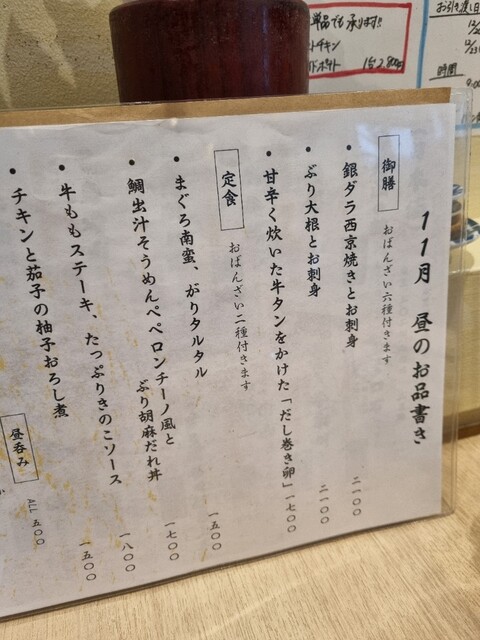 11月 昼のお品書き
御膳
おばんざい六種付きます
・銀ダラ西京焼きとお刺身 二一〇〇
・ぶり大根とお刺身 二一〇〇
・甘辛く炊いた牛タンをかけた「だし巻き卵」 一七〇〇
定食
おばんざい二種付きます
・まぐろ南蛮、がりタルタル 一五〇〇
・鯛出汁そうめんペペロンチーノ風と
ぶり胡麻だれ丼 一七〇〇
・牛ももステーキ、たっぷりきのこソース 一八〇〇
・チキンと茄子の柚子おろし煮 一五〇〇
昼呑み
ALL 五〇〇
単品でも承ります!!
トチキン
ドポテト
お引き渡し日
12/
12/
時間
9:00